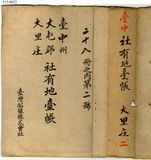 臺中 社有地臺帳 大里庄 二
二十八冊之內第二號
臺中州
大屯郡 社有地臺帳
大里庄
臺灣製糖株式會社